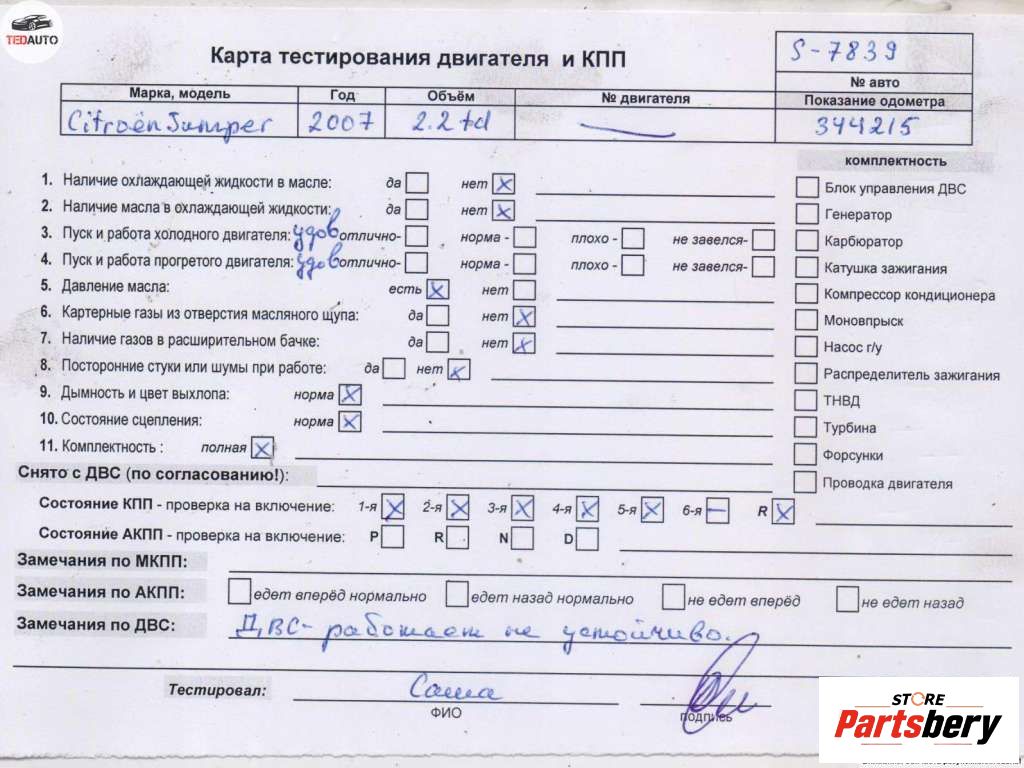 TEDAUTO
Карта тестирования двигателя и КПП
S-7839
№ авто
Марка, модель Год Объём № двигателя Показание одометра
Citroën Jumper 2007 2.2 td — 344215
комплектность
1. Наличие охлаждающей жидкости в масле: да нет X
Блок управления ДВС
2. Наличие масла в охлаждающей жидкости: да нет X
Генератор
3. Пуск и работа холодного двигателя: удов отлично- норма - плохо - не завелся-
Карбюратор
4. Пуск и работа прогретого двигателя: удов отлично- норма - плохо - не завелся-
Катушка зажигания
5. Давление масла: есть X нет
Компрессор кондиционера
6. Картерные газы из отверстия масляного щупа: да нет X
Моновпрыск
7. Наличие газов в расширительном бачке: да нет X
Насос г/у
8. Посторонние стуки или шумы при работе: да нет X
Распределитель зажигания
9. Дымность и цвет выхлопа: норма X
ТНВД
10. Состояние сцепления: норма X
Турбина
11. Комплектность : полная X
Форсунки
Снято с ДВС (по согласованию!):
Проводка двигателя
Состояние КПП - проверка на включение: 1-я X 2-я X 3-я X 4-я X 5-я X 6-я — R X
Состояние АКПП - проверка на включение: P R N D
Замечания по МКПП:
Замечания по АКПП: едет вперёд нормально едет назад нормально не едет вперёд не едет назад
Замечания по ДВС: ДВС- работает не устойчиво.
Тестировал: Саша
ФИО подпись
STORE
Partsbery